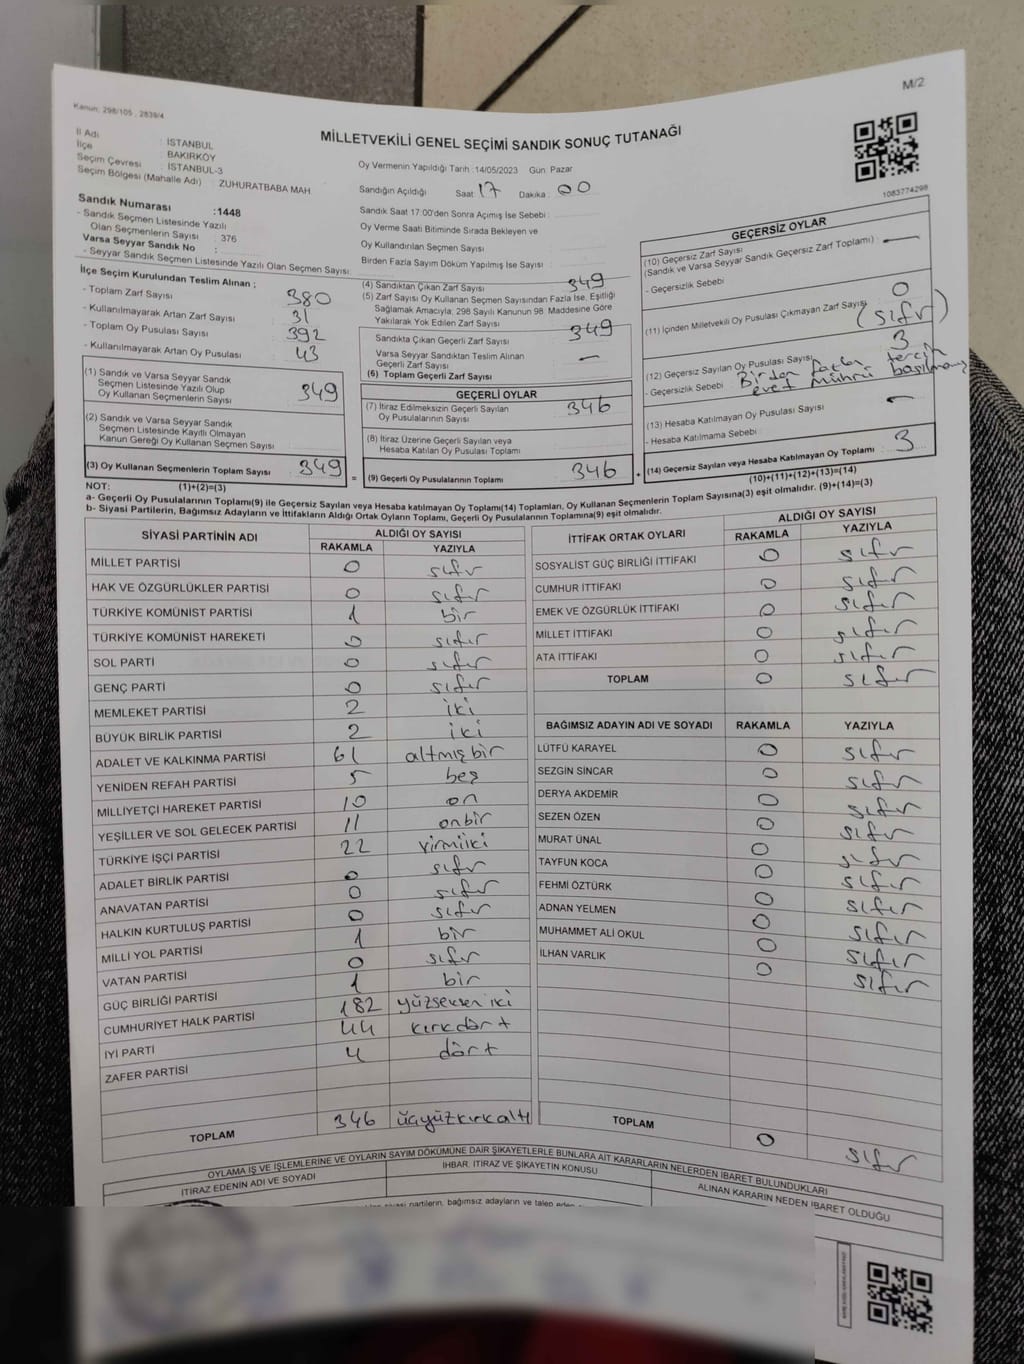 M/2
Kanun: 298/105 , 2839/4
MİLLETVEKİLİ GENEL SEÇİMİ SANDIK SONUÇ TUTANAĞI
1083774298
İl Adı : İSTANBUL
İlçe : BAKIRKÖY
Seçim Çevresi : İSTANBUL-3
Seçim Bölgesi (Mahalle Adı) : ZUHURATBABA MAH
Sandık Numarası :1448
- Sandık Seçmen Listesinde Yazılı
Olan Seçmenlerin Sayısı : 376
Varsa Seyyar Sandık No :
- Seyyar Sandık Seçmen Listesinde Yazılı Olan Seçmen Sayısı :
Oy Vermenin Yapıldığı Tarih :14/05/2023 Gün Pazar
Sandığın Açıldığı Saat 17 Dakika : 00
Sandık Saat 17.00'den Sonra Açımış İse Sebebi :
Oy Verme Saati Bitiminde Sırada Bekleyen ve
Oy Kullandırılan Seçmen Sayısı :
Birden Fazla Sayım Döküm Yapılmış İse Sayısı :
İlçe Seçim Kurulundan Teslim Alınan ;
- Toplam Zarf Sayısı 380
- Kullanılmayarak Artan Zarf Sayısı 31
- Toplam Oy Pusulası Sayısı 392
- Kullanılmayarak Artan Oy Pusulası 43
(1) Sandık ve Varsa Seyyar Sandık
Seçmen Listesinde Yazılı Olup
Oy Kullanan Seçmenlerin Sayısı 349
(2) Sandık ve Varsa Seyyar Sandık
Seçmen Listesinde Kayıtlı Olmayan
Kanun Gereği Oy Kullanan Seçmen Sayısı
(3) Oy Kullanan Seçmenlerin Toplam Sayısı 349
(4) Sandıktan Çıkan Zarf Sayısı 349
(5) Zarf Sayısı Oy Kullanan Seçmen Sayısından Fazla İse, Eşitliği
Sağlamak Amacıyla; 298 Sayılı Kanunun 98. Maddesine Göre
Yakılarak Yok Edilen Zarf Sayısı
Sandıkta Çıkan Geçerli Zarf Sayısı 349
Varsa Seyyar Sandıktan Teslim Alınan
Geçerli Zarf Sayısı —
(6) Toplam Geçerli Zarf Sayısı
GEÇERLİ OYLAR
(7) İtiraz Edilmeksizin Geçerli Sayılan
Oy Pusulalarının Sayısı 346
(8) İtiraz Üzerine Geçerli Sayılan veya
Hesaba Katılan Oy Pusulası Toplamı
= (9) Geçerli Oy Pusulalarının Toplamı 346
GEÇERSİZ OYLAR
(10) Geçersiz Zarf Sayısı
(Sandık ve Varsa Seyyar Sandık Geçersiz Zarf Toplamı) : —
- Geçersizlik Sebebi
(11) İçinden Milletvekili Oy Pusulası Çıkmayan Zarf Sayısı 0 (sıfır)
(12) Geçersiz Sayılan Oy Pusulası Sayısı 3
- Geçersizlik Sebebi Birden fazla tercih
evet mührü basılmış
(13) Hesaba Katılmayan Oy Pusulası Sayısı —
- Hesaba Katılmama Sebebi
+ (14) Geçersiz Sayılan veya Hesaba Katılmayan Oy Toplamı 3
NOT: (1)+(2)=(3)
(10)+(11)+(12)+(13)=(14)
a- Geçerli Oy Pusulalarının Toplamı(9) ile Geçersiz Sayılan veya Hesaba katılmayan Oy Toplamı(14) Toplamları, Oy Kullanan Seçmenlerin Toplam Sayısına(3) eşit olmalıdır. (9)+(14)=(3)
b- Siyasi Partilerin, Bağımsız Adayların ve İttifakların Aldığı Ortak Oyların Toplamı, Geçerli Oy Pusulalarının Toplamına(9) eşit olmalıdır.
SİYASİ PARTİNİN ADI ALDIĞI OY SAYISI
RAKAMLA YAZIYLA
MİLLET PARTİSİ 0 sıfır
HAK VE ÖZGÜRLÜKLER PARTİSİ 0 sıfır
TÜRKİYE KOMÜNİST PARTİSİ 1 bir
TÜRKİYE KOMÜNİST HAREKETİ 0 sıfır
SOL PARTİ 0 sıfır
GENÇ PARTİ 0 sıfır
MEMLEKET PARTİSİ 2 iki
BÜYÜK BİRLİK PARTİSİ 2 iki
ADALET VE KALKINMA PARTİSİ 61 altmışbir
YENİDEN REFAH PARTİSİ 5 beş
MİLLİYETÇİ HAREKET PARTİSİ 10 on
YEŞİLLER VE SOL GELECEK PARTİSİ 11 onbir
TÜRKİYE İŞÇİ PARTİSİ 22 yirmiiki
ADALET BİRLİK PARTİSİ 0 sıfır
ANAVATAN PARTİSİ 0 sıfır
HALKIN KURTULUŞ PARTİSİ 0 sıfır
MİLLİ YOL PARTİSİ 1 bir
VATAN PARTİSİ 0 sıfır
GÜÇ BİRLİĞİ PARTİSİ 1 bir
CUMHURİYET HALK PARTİSİ 182 yüzseksen iki
İYİ PARTİ 44 kırkdört
ZAFER PARTİSİ 4 dört
TOPLAM 346 üçyüzkırkaltı
İTTİFAK ORTAK OYLARI ALDIĞI OY SAYISI
RAKAMLA YAZIYLA
SOSYALİST GÜÇ BİRLİĞİ İTTİFAKI 0 sıfır
CUMHUR İTTİFAKI 0 sıfır
EMEK VE ÖZGÜRLÜK İTTİFAKI 0 sıfır
MİLLET İTTİFAKI 0 sıfır
ATA İTTİFAKI 0 sıfır
TOPLAM 0 sıfır
BAĞIMSIZ ADAYIN ADI VE SOYADI RAKAMLA YAZIYLA
LÜTFÜ KARAYEL 0 sıfır
SEZGİN SİNCAR 0 sıfır
DERYA AKDEMİR 0 sıfır
SEZEN ÖZEN 0 sıfır
MURAT ÜNAL 0 sıfır
TAYFUN KOCA 0 sıfır
FEHMİ ÖZTÜRK 0 sıfır
ADNAN YELMEN 0 sıfır
MUHAMMET ALİ OKUL 0 sıfır
İLHAN VARLIK 0 sıfır
TOPLAM 0 sıfır
OYLAMA İŞ VE İŞLEMLERİNE VE OYLARIN SAYIM DÖKÜMÜNE DAİR ŞİKAYETLERLE BUNLARA AİT KARARLARIN NELERDEN İBARET BULUNDUKLARI
İTİRAZ EDENİN ADI VE SOYADI İHBAR, İTİRAZ VE ŞİKAYETİN KONUSU ALINAN KARARIN NEDEN İBARET OLDUĞU
siyasi partilerin, bağımsız adayların ve talep eden